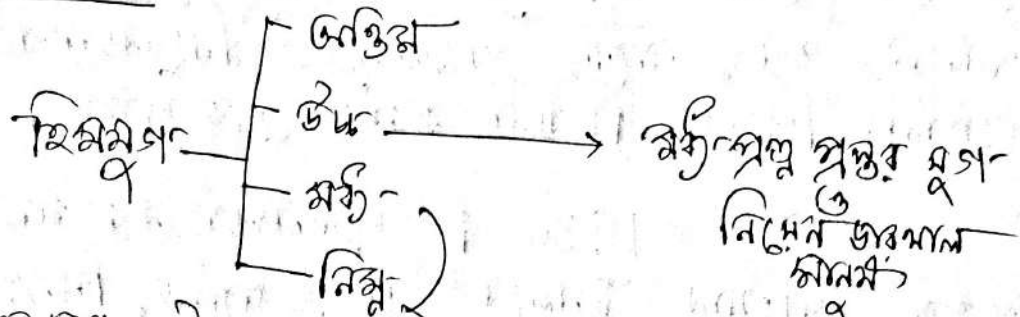 অন্তিম
উচ্চ
হিমযুগ
মধ্য
নিম্ন
মধ্য প্রত্ন প্রস্তর যুগ
ও
নিয়েনডারথাল
মানুষ